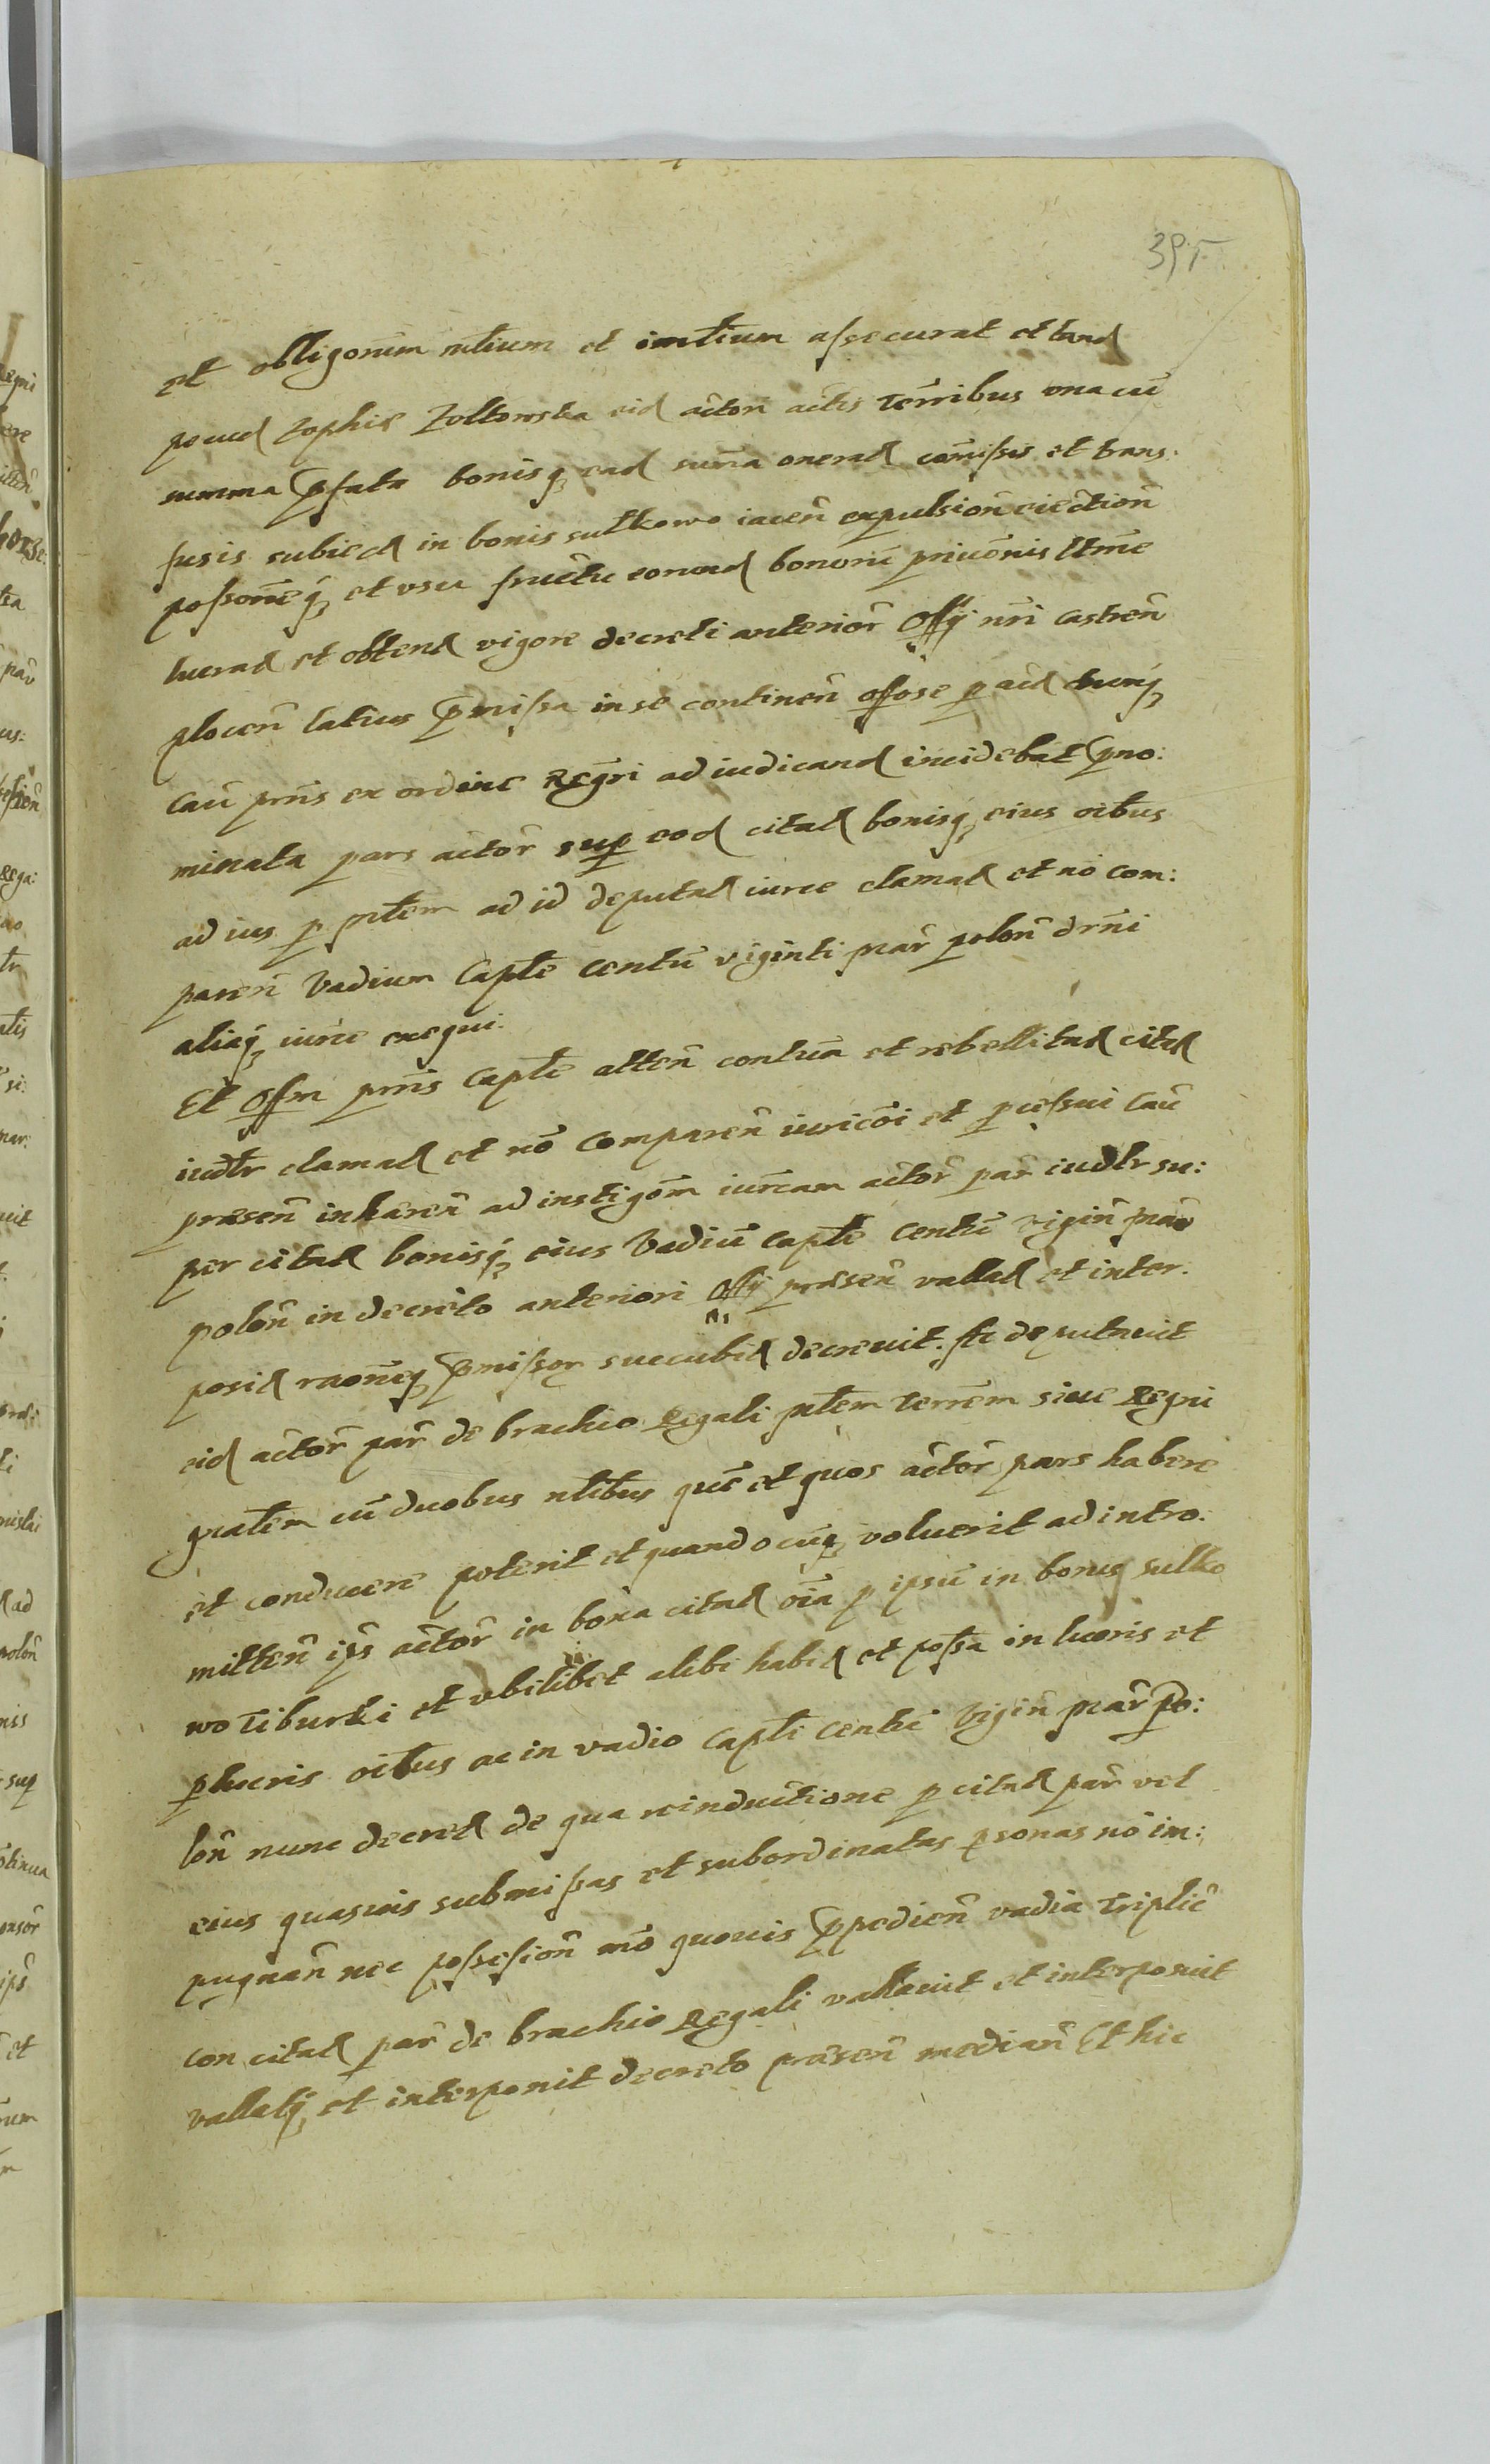 395
et obligonum mltium et imltium assecurat et tand
poued Zophie Zoltowska eid actori actis Terribus una cu
summa prefata bonisq ead suma onerad comissis et trans
fusis subiecd in bonis sulkowo iacen expulsion eiection
possoneq et usu fructu eorund bonoru privonis ltme
lucrad et obtend vigore decreti anterior Offij nri castren
plocen latius premissa in se continen offose p acd
cau prns ex ordine Regri ad iudicand incidebat preno:
minata pars actor sup eod citad bonisq eius oibus
ad ius p mltem ad id deputad iurce clamad et no com:
paren Vadium Caplte Centu viginti mar polon drni
aliasq iurce exequi.
Et Offm prns Caplte atten contua et rebellitad citad
iudlr clamad et no comparen iuricoi et pcessui Cau
presen inheren ad instigom iurcam actor par iudlr su:
per citad bonisq eius Vadiu Caplte Centu vigin mar
polon in decreto anteriori Offij presen vallad et inter
posid raoneq premissor succubid decrevit. Ac deputavit
eid actor par de brachio Regali mltem Terrem sive Regni
gnalem cu duobus nltibus que et quos actor pars habere
et conducere poterit et quandocunq voluerit ad intro:
mitten ips actor in bona citad oia p ipsu in bonis sulko
wo Tiburki et ubilibet alibi habid et possa in lucris et
plucris oibus ac in vadio Caplti Centu Vigin mar po:
lon nunc decred de qua reinductione p citad par vel
eius quasuis submissas et subordinatas psonas no im:
pugnan nec possesion mo quovis prepedien vadia Triplic
con citad par de brachio Regali vallavit et interposuit
vallatq et interponit decreto presen median Et hic